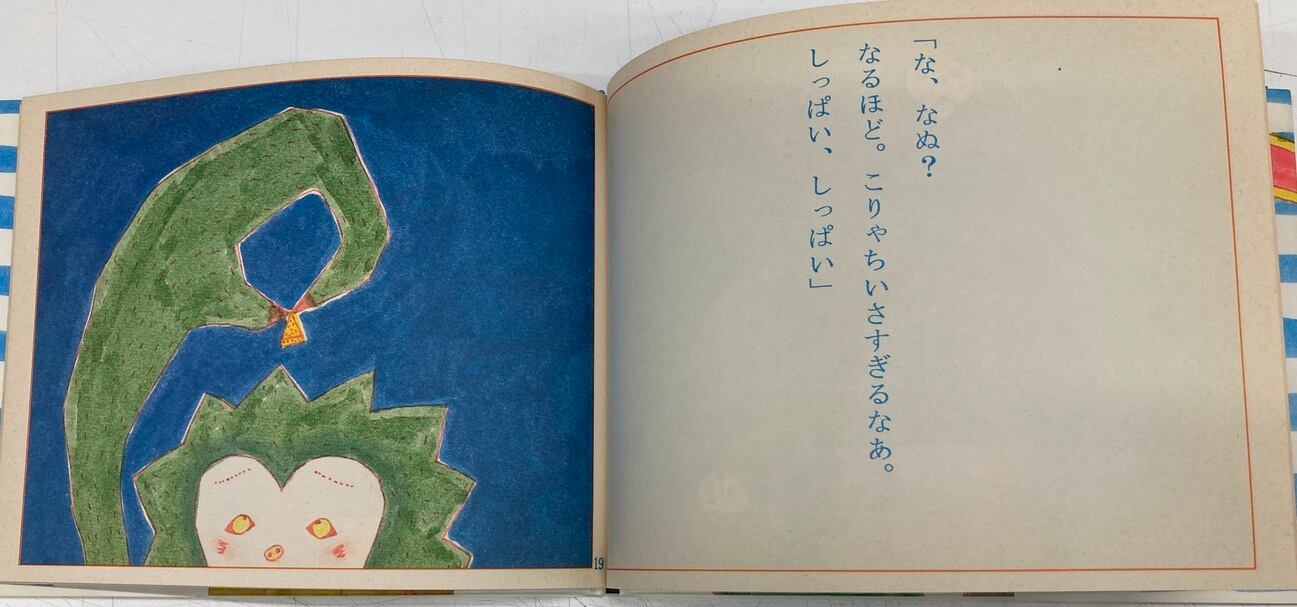 「な、なぬ?
なるほど。こりゃちいさすぎるなあ。
しっぱい、しっぱい」
19